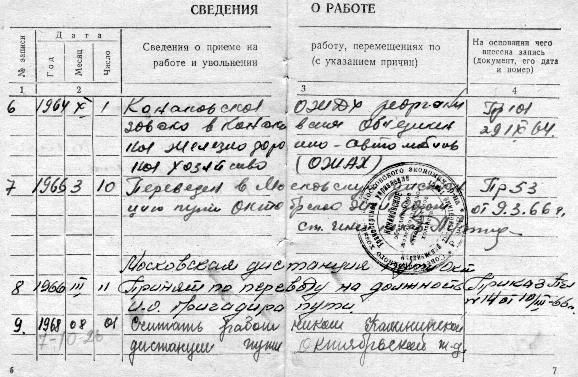 СВЕДЕНИЯ О РАБОТЕ
№ записи
Дата
Год
Месяц
Число
Сведения о приеме на работу, перемещениях по
работе и увольнении (с указанием причин)
На основании чего
внесена запись
(документ, его дата
и номер)
1 2 3 4
6 1964 XI 1 Конаковское ОЖДХ реоргани
зовано в Конаковский Объединен
ное железнодорожно-автомобиль
ное хозяйство (ОЖАХ)
Пр 101
29 IX 64.
7 1966 3 10 Переведен в Московскую дистан
цию пути Октябрьской
ст. инспектор
Пр. 53
от 9.3.66 г.
Московская дистанция пути Окт
8 1966 III 11 Принят по переводу на должность
И.О. бригадира пути.
Приказ
№ 14 от 10/III-66 г.
9. 1968 08 01 Считать работником Калининской
дистанции пути Октябрьской ж.д.
7-10-26
6 7